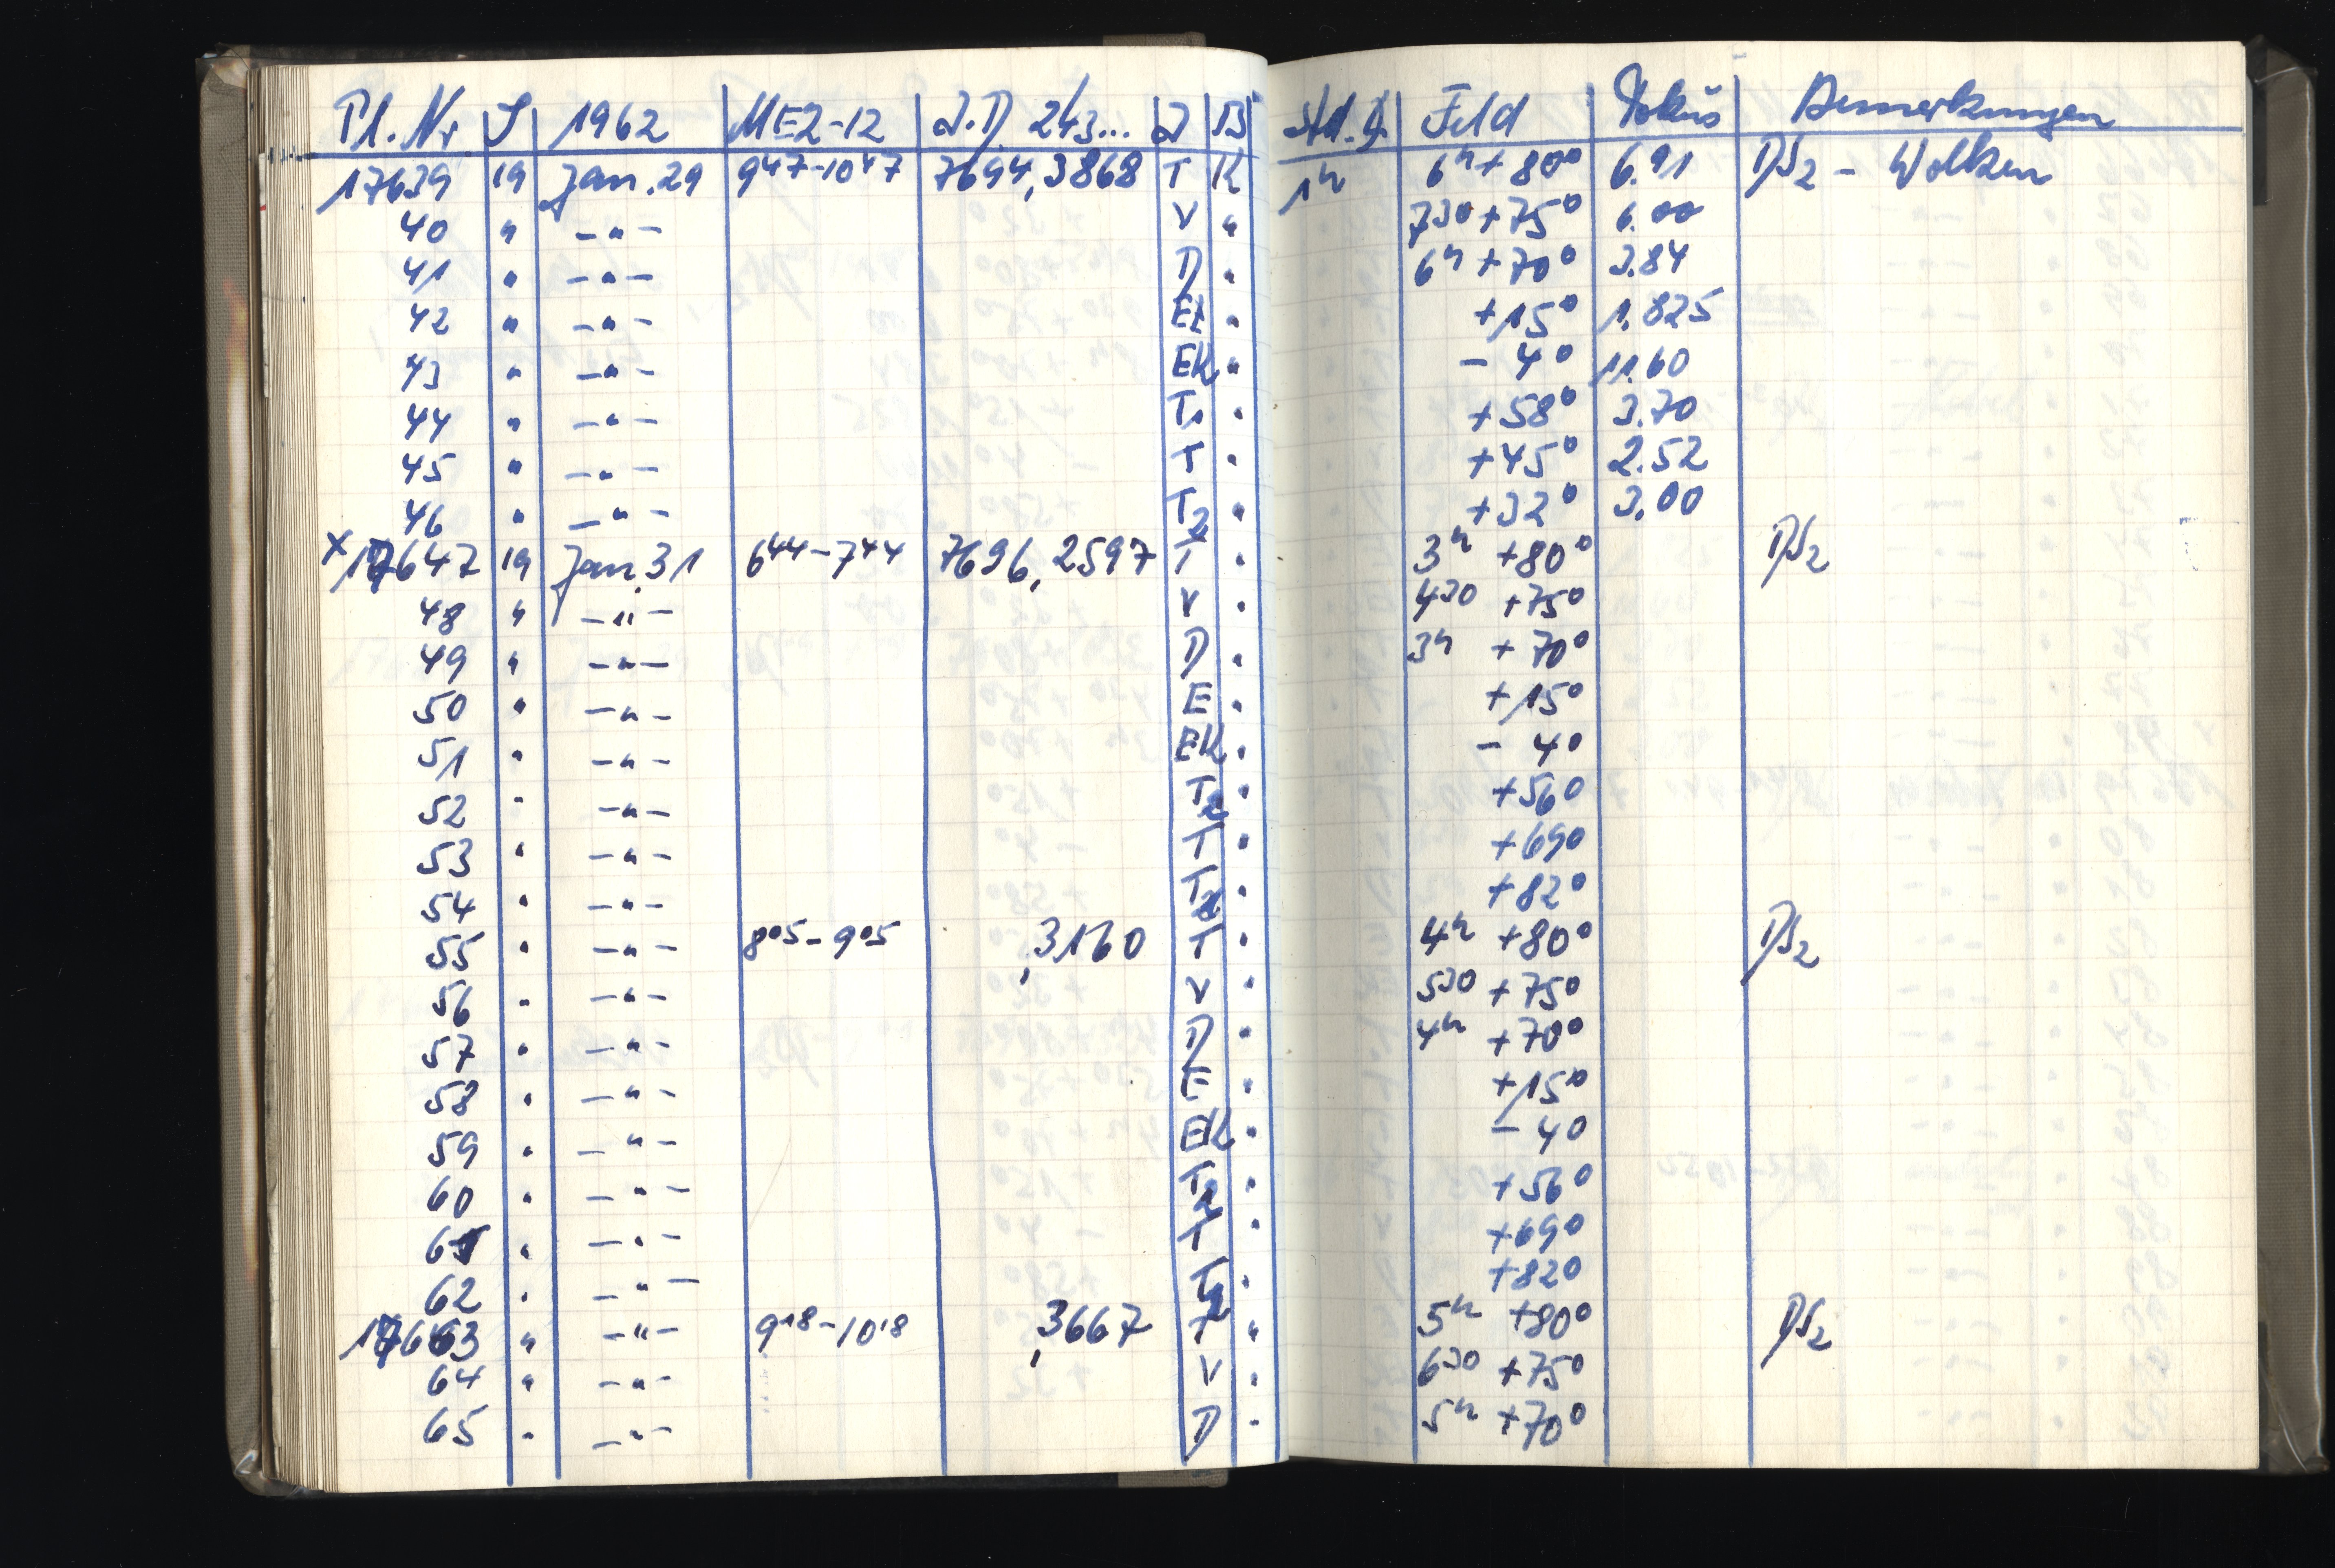 Pl. Nr S 1962 MEZ-12 J.D. 243... J B Std. Feld Fokus Bemerkungen
17639 19 Jan. 29 9 47-10 47 7694,3868 T K 1h 6h + 80° 6.91 DS2 - Wolken
40 " -"- V " 7 30 + 75° 6.00
41 " -"- D " 6h + 70° 3.84
42 " -"- Et " +15° 1.825
43 " -"- EK " - 4° 11.60
44 " -"- T1 " +58° 3.70
45 " -"- T " +45° 2.52
46 " -"- T2 " +32° 3.00
x 17647 19 Jan. 31 6 44-7 44 7696,2597 T " 3h +80° DS2
48 " -"- V " 4 30 +75°
49 " -"- D " 3h +70°
50 " -"- E " +15°
51 " -"- EK " - 4°
52 " -"- T2 " +56°
53 " -"- T " +69°
54 " -"- " +82°
55 " -"- 8 05-9 05 ,3160 T " 4h +80° DS2
56 " -"- V " 5 30 +75°
57 " -"- D " 4h +70°
58 " -"- E " +15°
59 " -"- EK " - 4°
60 " -"- " +56°
61 " -"- T " +69°
62 " -"- T2 " +82°
17663 " -"- 9 18-10 18 ,3667 T " 5h +80° DS2
64 " -"- V " 6 30 +75°
65 " -"- D " 5h +70°